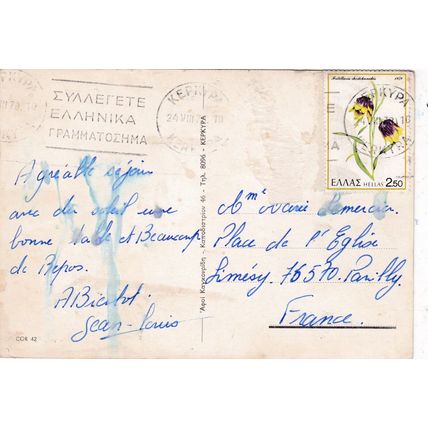 ΚΕΡΚΥΡΑ
ΣΥΛΛΕΓΕΤΕ
ΕΛΛΗΝΙΚΑ
ΓΡΑΜΜΑΤΟΣΗΜΑ
ΚΕΡΚΥΡΑ
24 VIII
1978
ΚΕΡΚΥΡΑ
ΕΛΛΑΣ HELLAS 2.50
Agréable séjour
avec du soleil une
bonne table et Beaucoup
de Repos.
A Bientot.
Jean-Louis
Αφοί Καποδιστρίου 46 - Τηλ. 8096 - ΚΕΡΚΥΡΑ
Mme
Place de l'Eglise
Limésy. 76570. Pavilly.
France.
COR 42